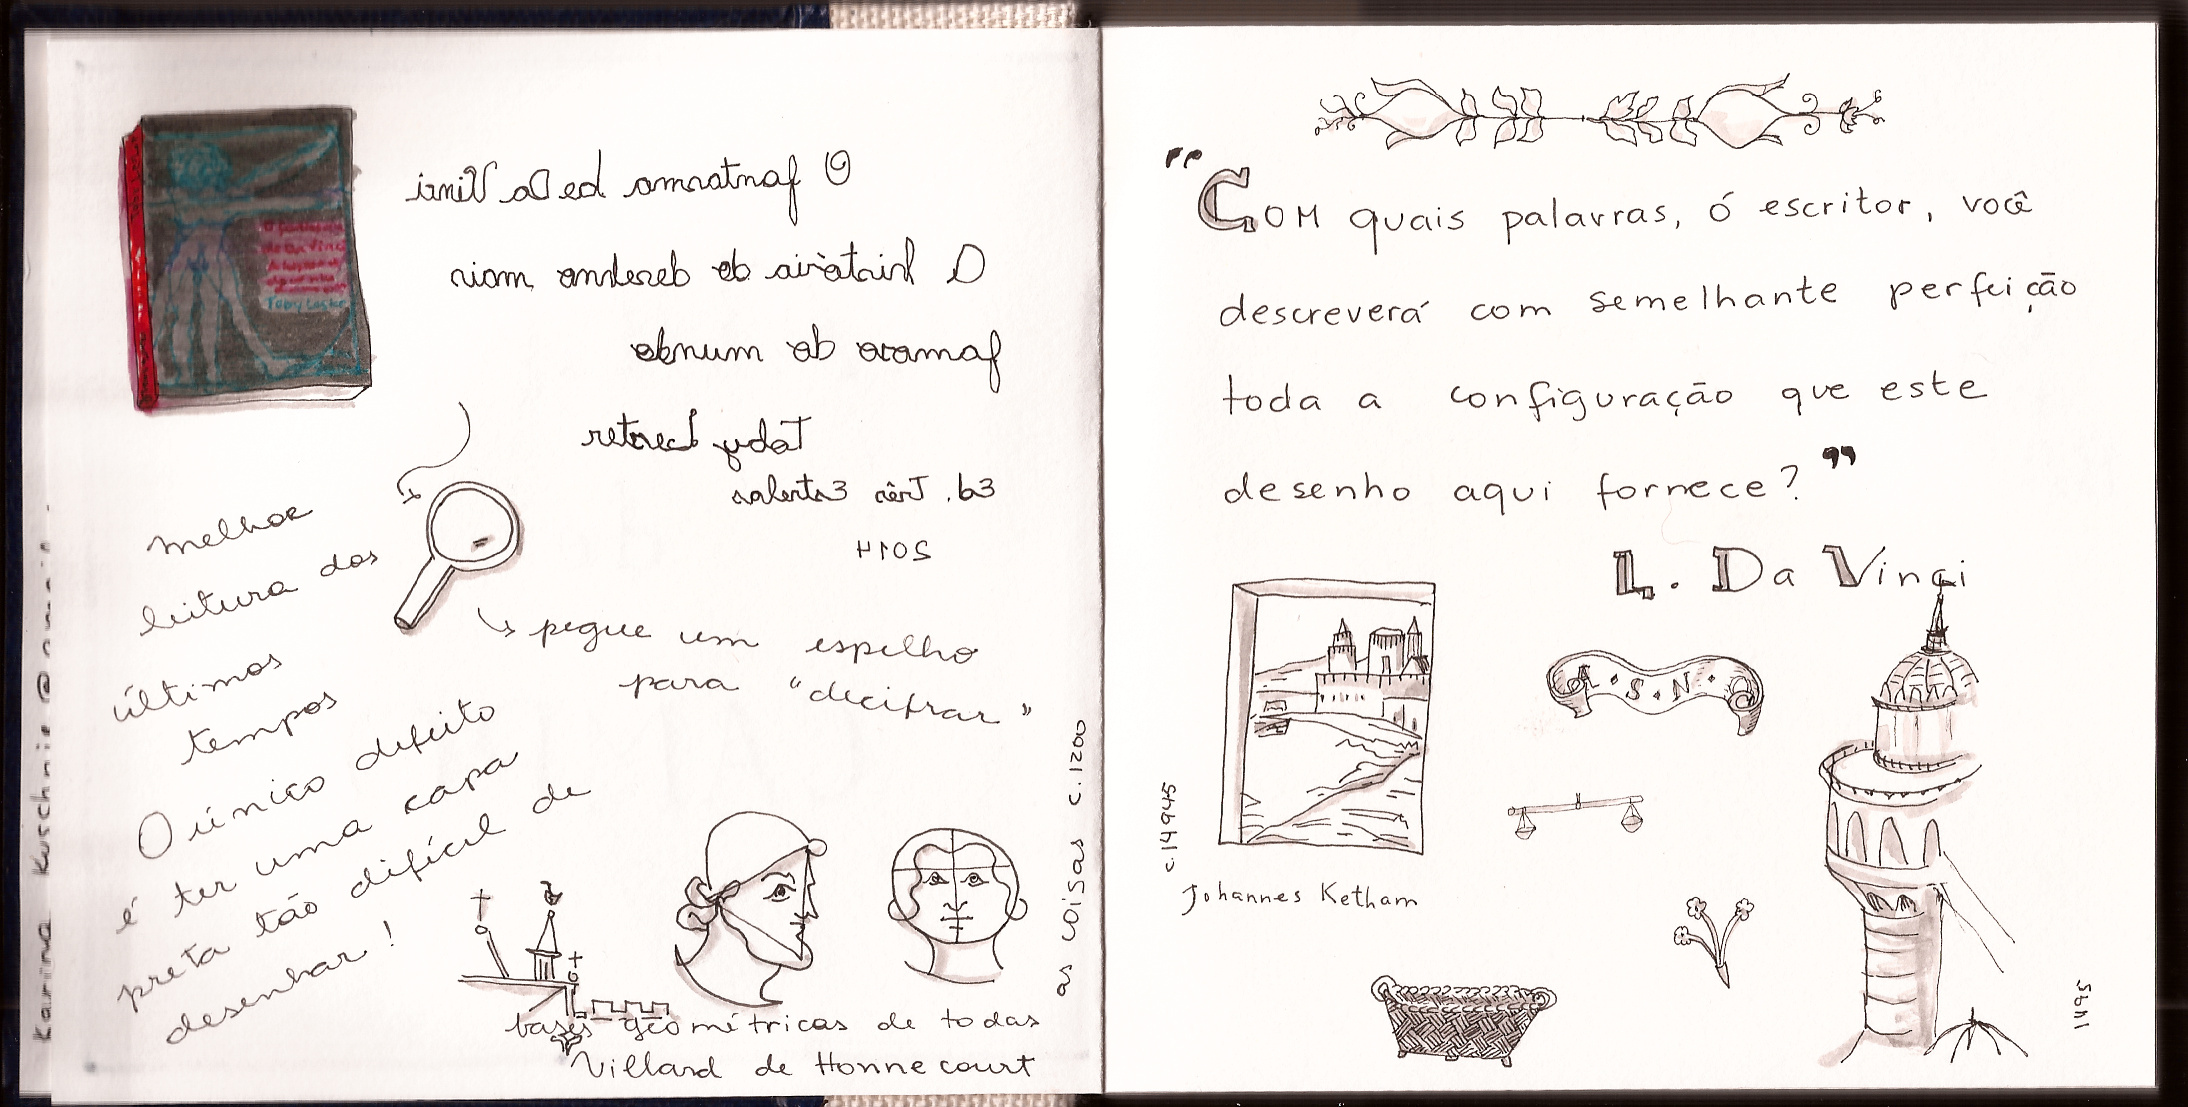 O fantasma de Da Vinci
A história do desenho mais
famoso do mundo
Toby Lester
Ed. Três Estrelas
2014
melhor
leitura dos
últimos
tempos
O único defeito
é ter uma capa
preta tão difícil de
desenhar!
pegue um espelho
para "decifrar"
bases geométricas de todas
as coisas c. 1200
Villard de Honnecourt
Karina Kuschnir
Toby Lester
"Com quais palavras, ó escritor, você
descreverá com semelhante perfeição
toda a configuração que este
desenho aqui fornece?"
L. Da Vinci
A.S.N.
c. 14945
Johannes Ketham
1445